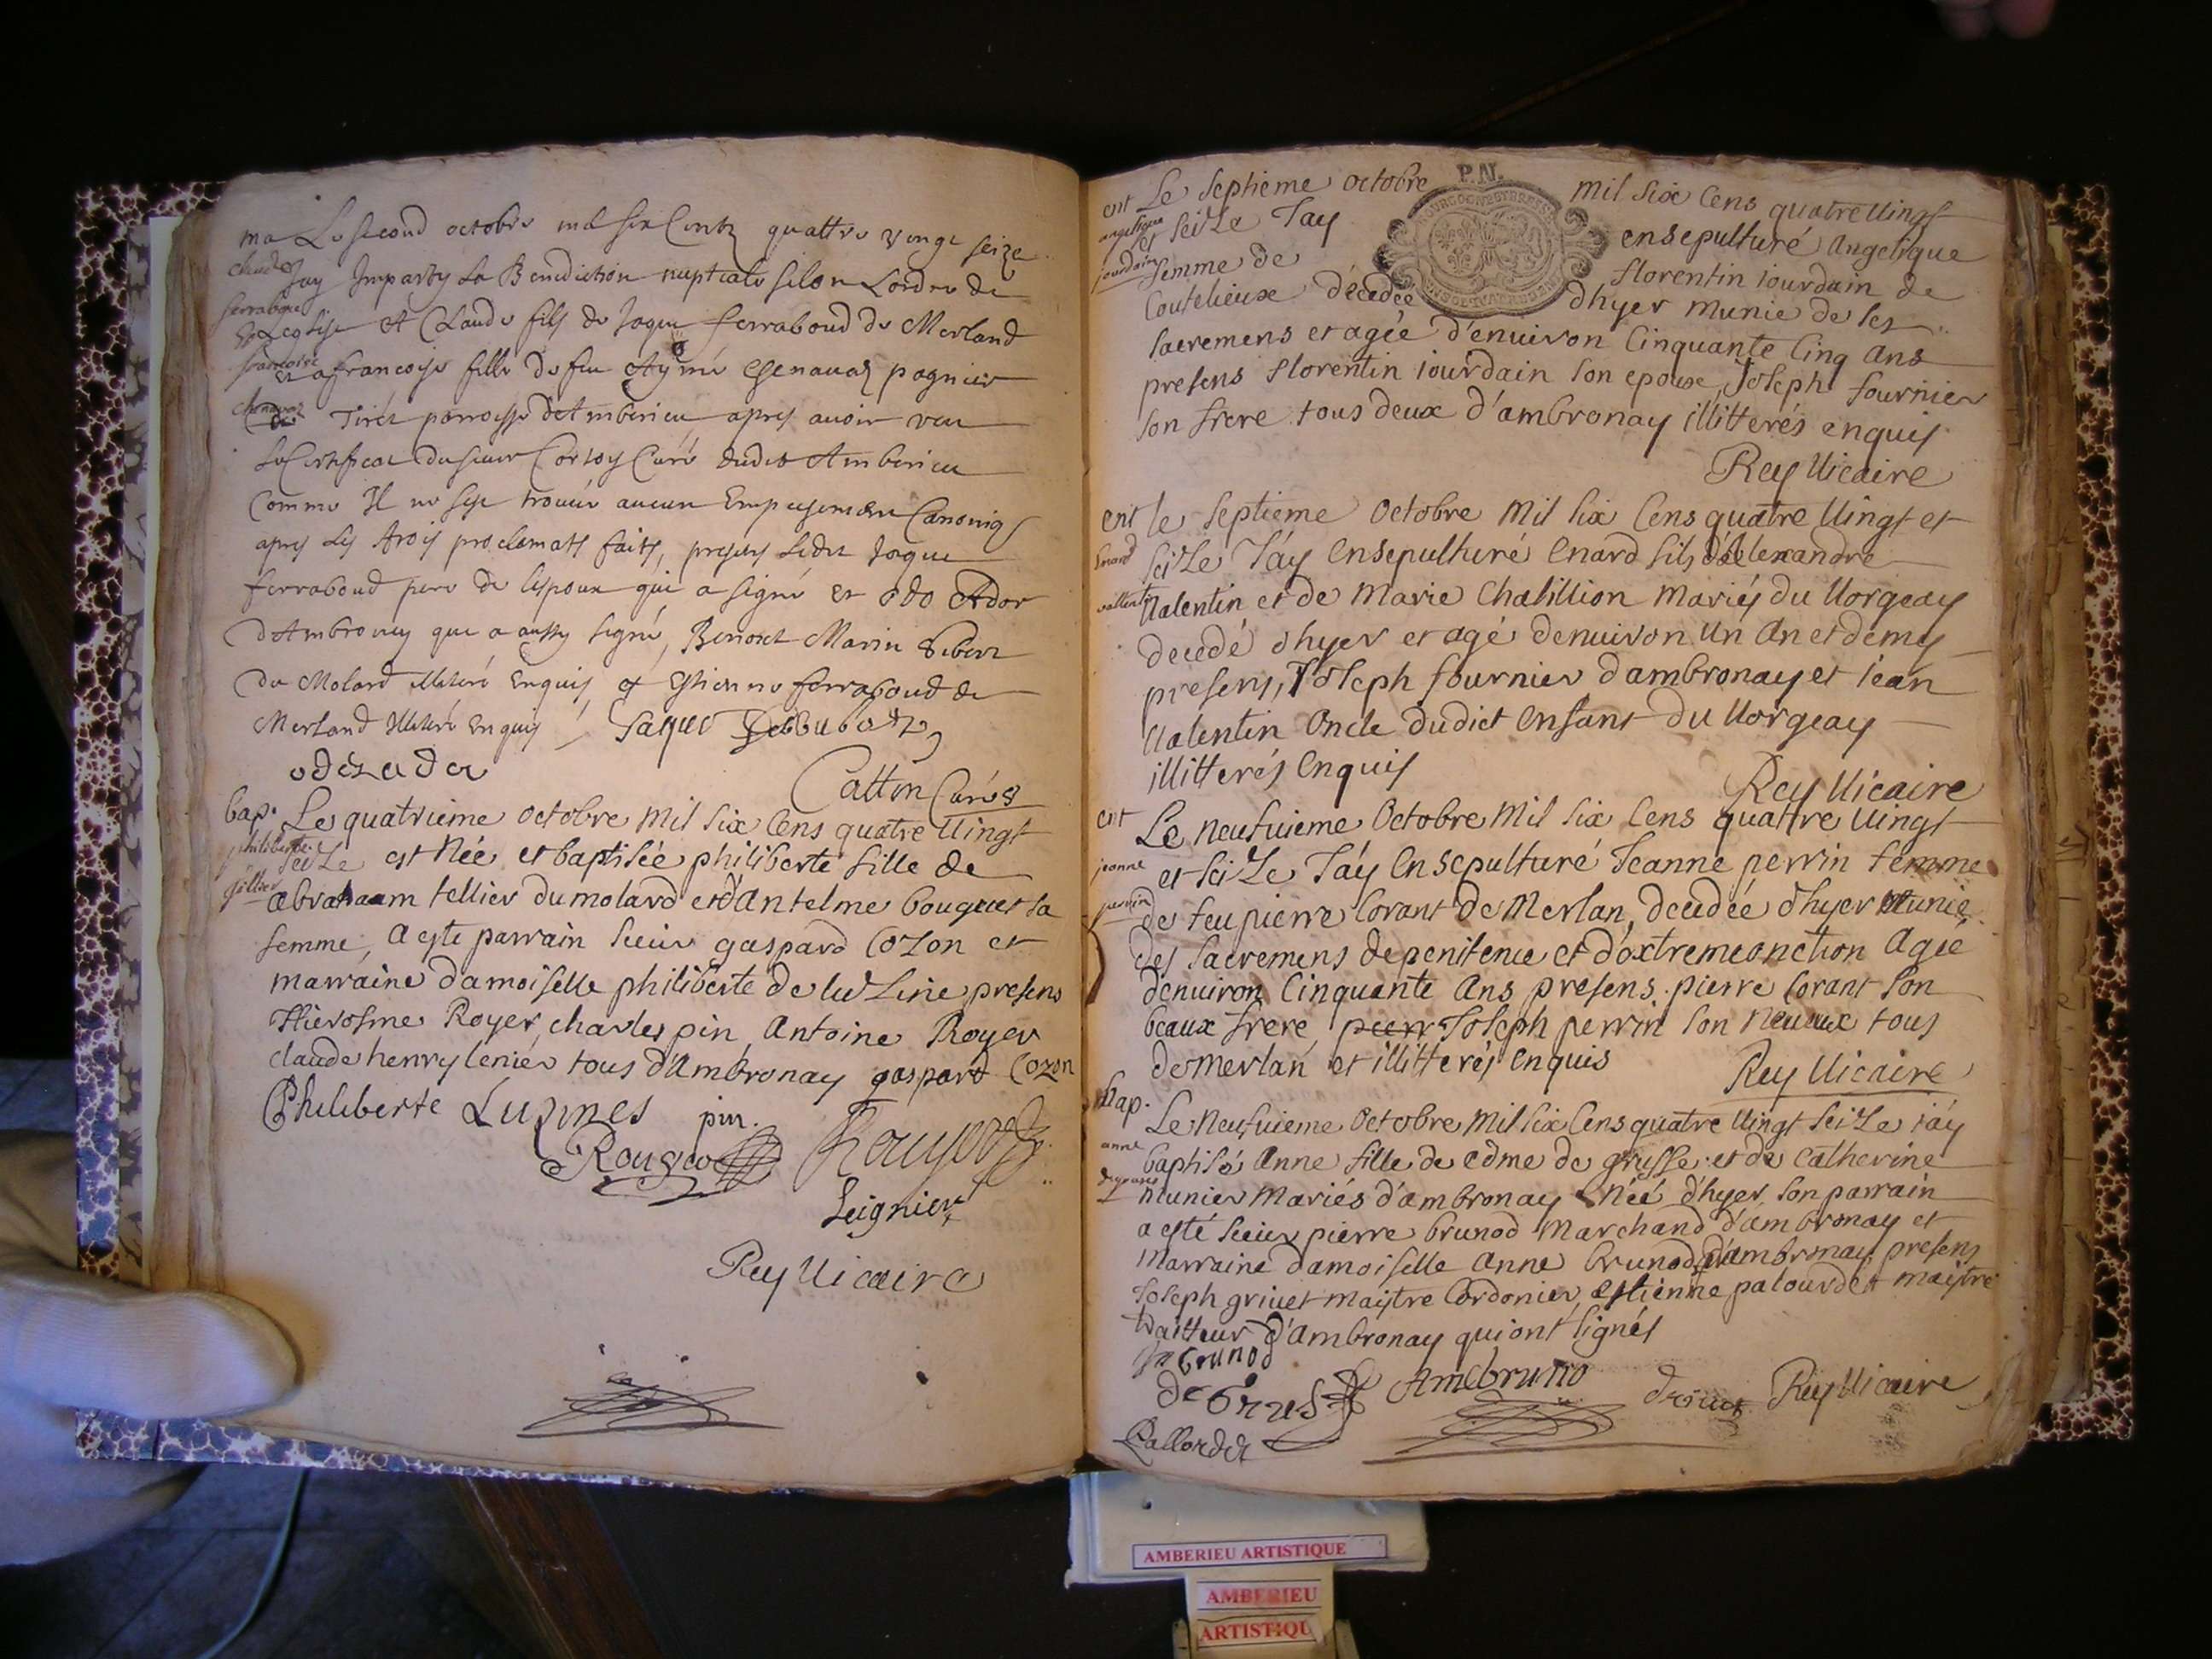 ma Le second octobre mil six Centz quattre vingt seize
claude
Jay Imparty La Benediction nuptiale selon Lordre de
ferraboud
Leglise A Claude fils de Jaque ferraboud de Merland
francoise
et a francoise fille de feu Aymé Chenavaz pagnier
chenavaz
de Tiret parroisse d'Amberieu apres avoir veu
le Certificat du sieur Curé dudit Amberieu
Comme Il ne sest trouvé aucun Empeschement Canoniq
apres Les trois proclamats faits, presens Ledit Jaque
ferraboud pere de lespoux qui a signé et odo Ador
d'Ambronay qui a aussy signé, Benoict Marin
du Molard illiteré Enquis, et Estienne ferraboud de
Merland Illiteré Enquis
Cattin Curé
bap. Le quatrieme octobre mil six Cens quatre Vingt
philiberte
seize est Née et baptisée philiberte fille de
abrahaam tellier du molard et d'Antelme bouguet sa
femme, a esté parrain sieur gaspard Cozon et
marraine damoiselle philiberte de luzine presens
Hierosme Royer, charles pin, Antoine Royer
claude henry lenier tous d'Ambronay gaspard Cozon
Philiberte Luzines pin.
Rey Vicaire
P.N.
ent Le Septieme Octobre mil six Cens quatre Vingt
angelique
et seize Jay ensepulturé Angelique
jourdain
femme de florentin iourdain de
Coutelieux décédée d'hyer munie de ses
sacremens et agée d'environ Cinquante Cinq Ans
presens florentin iourdain son epoux, Joseph fournier
son frere tous deux d'ambronay illitterés enquis
Rey Vicaire
ent le Septieme Octobre Mil six Cens quatre Vingt et
Enard
seize Jáy Ensepulturé Enard fils d'Alexandre
vallentin
Valentin et de Marie Chatillion mariés du Vorgeay
decedé d'hyer et agé denuiron Un An et demy
presens, Joseph fournier d'ambronay et iean
Valentin Oncle dudict Enfant du Vorgeay
illitterés Enquis
Rey Vicaire
ent Le neufuieme Octobre Mil six Cens quattre uingt
jeanne
et seize Jáy Ensepulturé Jeanne perrin femme
perrin
de feu pierre lorant de Merlan, decedée d'hyer Munie
des sacremens de penitence et d'extremeonction Agée
denuiron Cinquante Ans presens pierre lorant son
beaux frere, Joseph perrin son Neueux tous
de Merlan et illitterés Enquis
Rey Vicaire
bap. Le Neufuieme Octobre Mil six Cens quatre Vingt seize i'áy
anne
baptisé Anne fille de edme de grusse et de Catherine
munier mariés d'ambronay Née d'hyer, son parrain
a esté sieur pierre brunod Marchand d'ambronay et
marraine damoiselle Anne brunod d'ambronay, presens
Joseph griuet maistre Cordonier, estienne palourdet maistre
traitteur d'Ambronay qui ont signés
brunod
Rey Vicaire
AMBERIEU ARTISTIQUE
AMBERIEU
ARTISTIQU